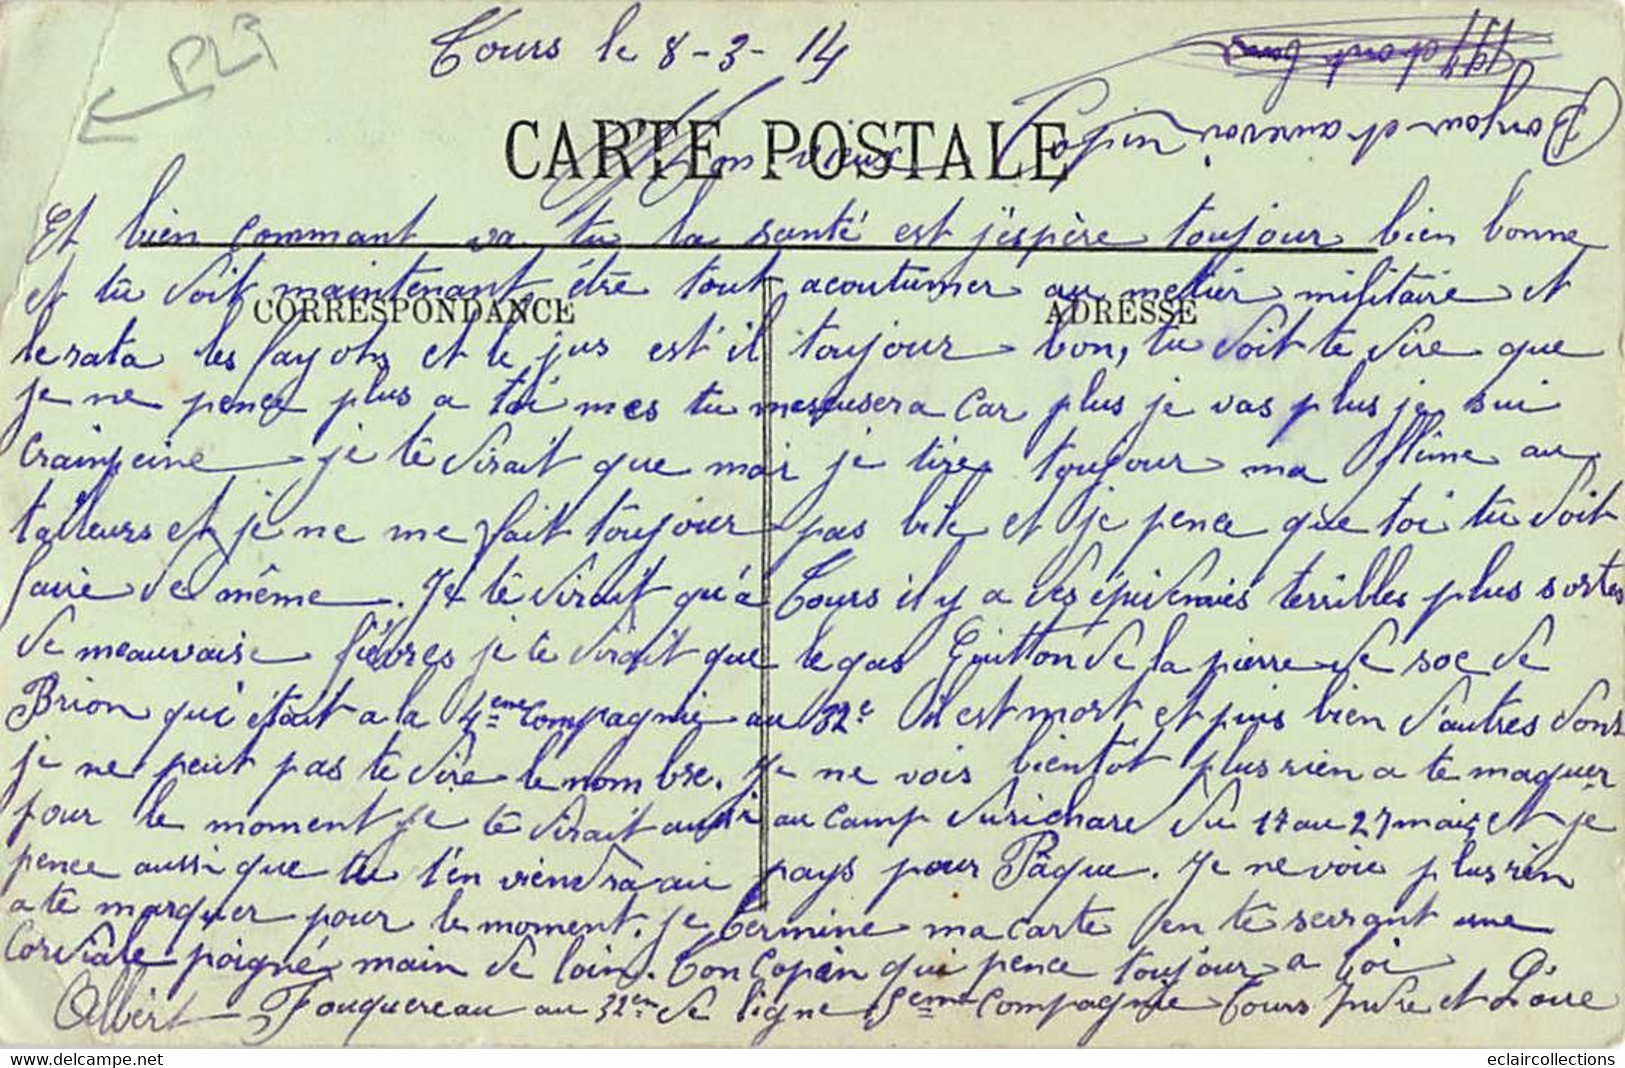 PLI
Tours le 8-3-14
Bonjour et au revoir
CARTE POSTALE
Mon vieux Copin
Et bien commant va tu la santé est j'éspère toujour bien bonne
CORRESPONDANCE
ADRESSE
et tu doit maintenant étre tout acoutumer au metier militaire et
le rata les fayots et le jus est il toujour bon, tu doit te dire que
je ne pence plus a toi mes tu mescusera car plus je vas plus je sui
crainpeine je te dirait que moi je tire toujour ma flême au
tailleurs et je ne me fait toujour pas bile et je pence que toi tu doit
faire de même. Je te dirait qu'a Tours il y a des épidemies terribles plus sortes
de meauvaise fièvres je te dirait que le gas Guitton de la pierre de soe de
Brion qui était a la 4eme compagnie au 32e il est mort et puis bien d'autres dont
je ne peut pas te dire le nombre. Je ne vois bientôt plus rien a te maquer
pour le moment je te dirait aussi au camp du richard du 17 au 27 mais et je
pence aussi que tu t'en viendra au pays pour Pâque. Je ne voie plus rien
a te marquer pour le moment. je termine ma carte en te serrant une
cordiale poigné main de loin. ton Copin qui pence toujour a toi
Albert Fouquereau au 32em de ligne 5eme compagnie Tours Indre et Loire
eclaircollections